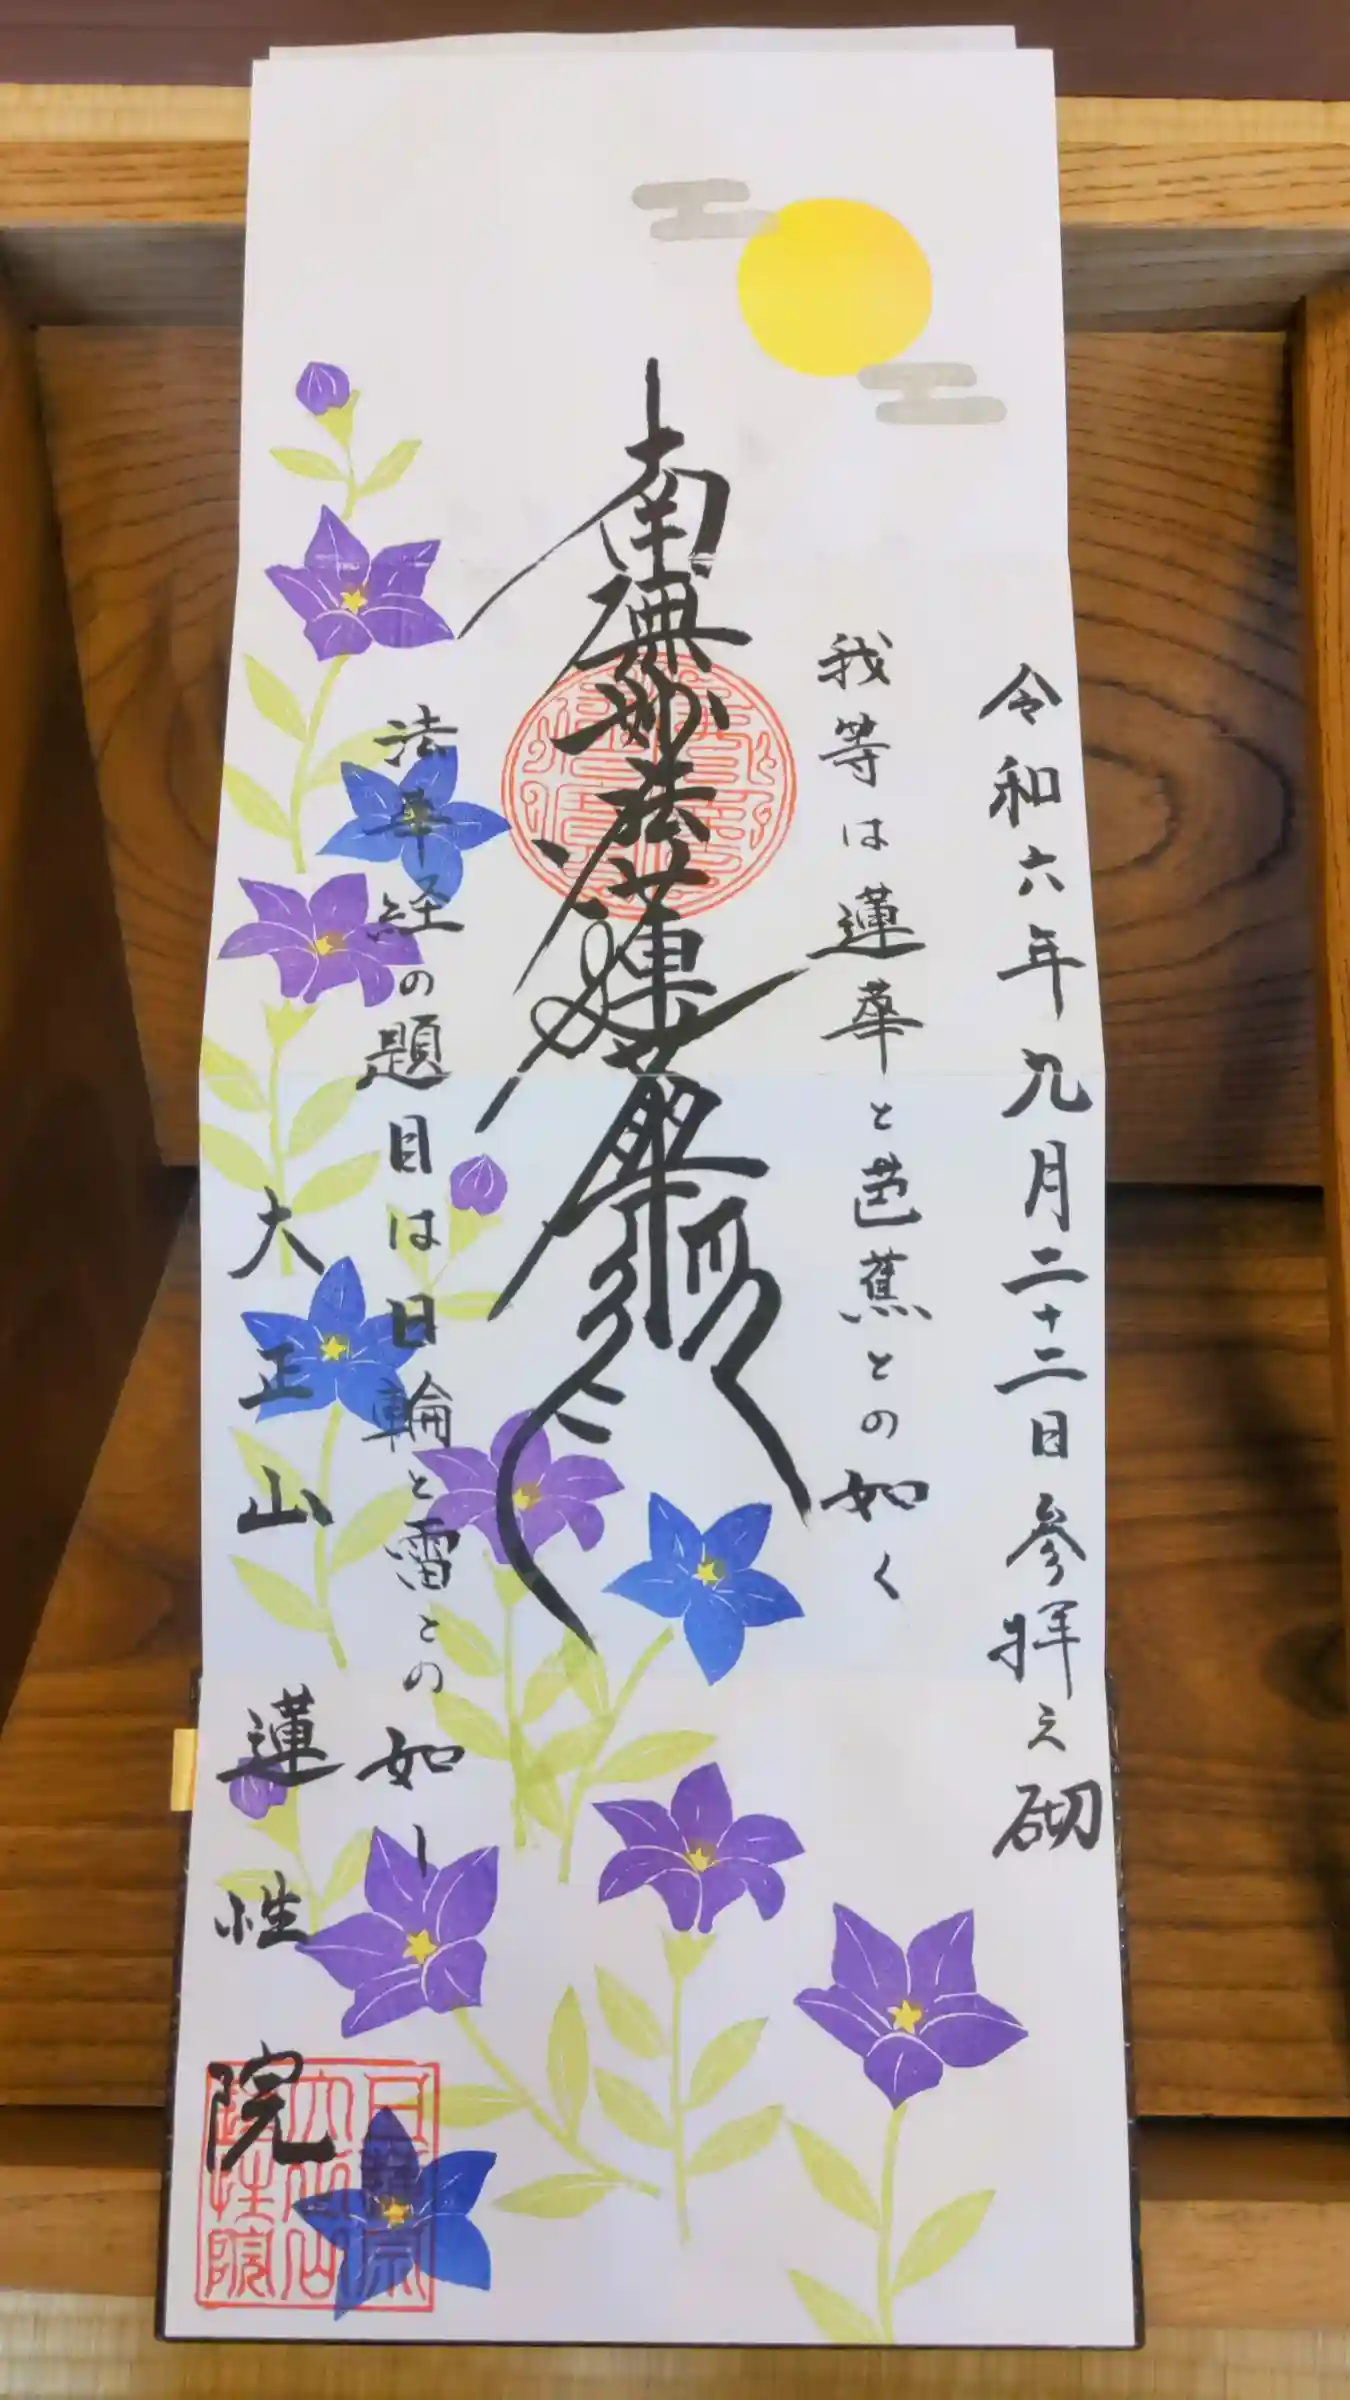 令和六年九月二十二日参拝之砌
我等は蓮華と芭蕉との如く
南無妙法蓮華経
法華経の題目は日輪と雷との如し
大正山蓮性院